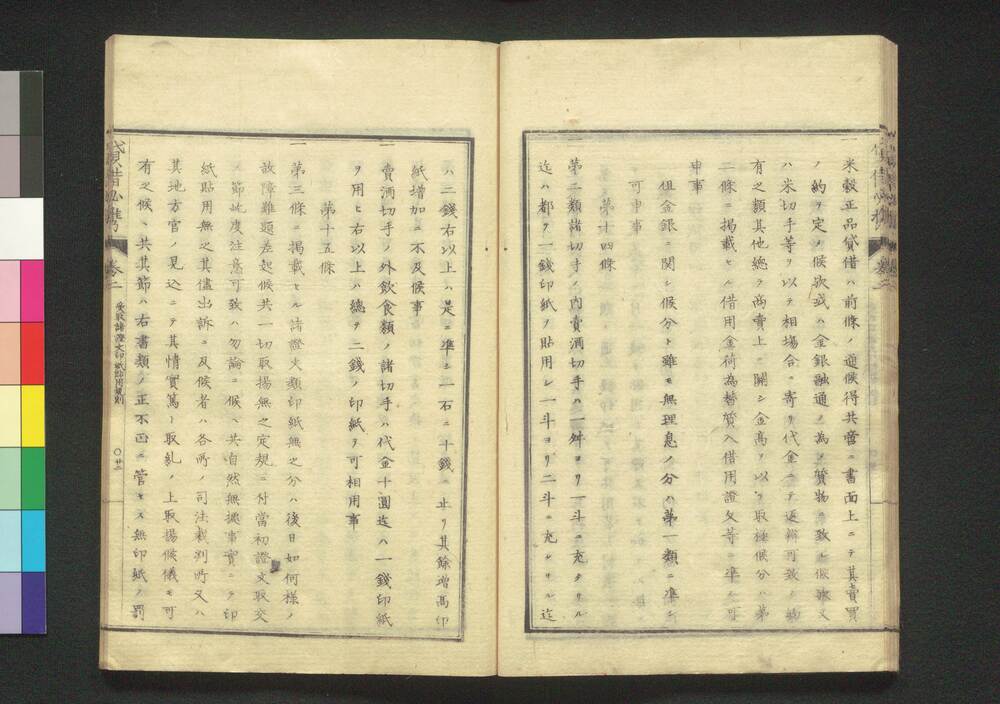 一米穀正品貸借ハ前條ノ通候得共啻ニ書面上ニテ其賣買
ノ約ヲ定メ候歟或ハ金銀融通ノ為メ質物ニ致シ候歟又
ハ米切手等ヲ以テ相場合ニ寄リ代金ニテ返辨可致ノ約
有之類其他總テ商賣上ニ關シ金高ヲ以テ取極候分ハ第
二條ニ掲載セル借用金荷為替質入借用證文等ニ準シ可
申事
但金銀ニ関シ候分ト雖モ無理息ノ分ハ第一類ニ準シ
可申事
第十四條
第二類諸切手ノ内賣酒切手ハ一舛ヨリ一斗ニ充タリル
迄ハ都テ一錢印紙ヲ貼用シ一斗ヨリ二斗ニ充タリル迄
ハ二錢右以上ハ是ニ準シ一石ニ十錢ニ止リ其餘増高印
紙増加ニ不及候事
一賣酒切手ノ外飲食類ノ諸切手ハ代金十圓迄ハ一錢印紙
ヲ用ヒ右以上ハ總テ二錢ノ印紙ヲ可相用事
第十五條
一第三條ニ掲載セル諸證文類印紙無之分ハ後日如何様ノ
故障難題差起候共一切取揚無之定規ニ付當初證文取交
ノ節此度注意可致ハ勿論ニ候ヘ共自然無據事實ニテ印
紙貼用無之其儘出訴ニ及候者ハ各所ノ司法裁判所又ハ
其地方官ノ見込ニテ其情實篤ト取糺ノ上取揚候儀モ可
有之候ヘ共其節ハ右書類ノ正不正ニ管セス無印紙ノ罰
貸借必携
卷二
受取諸證文印紙貼用規則
〇廿二